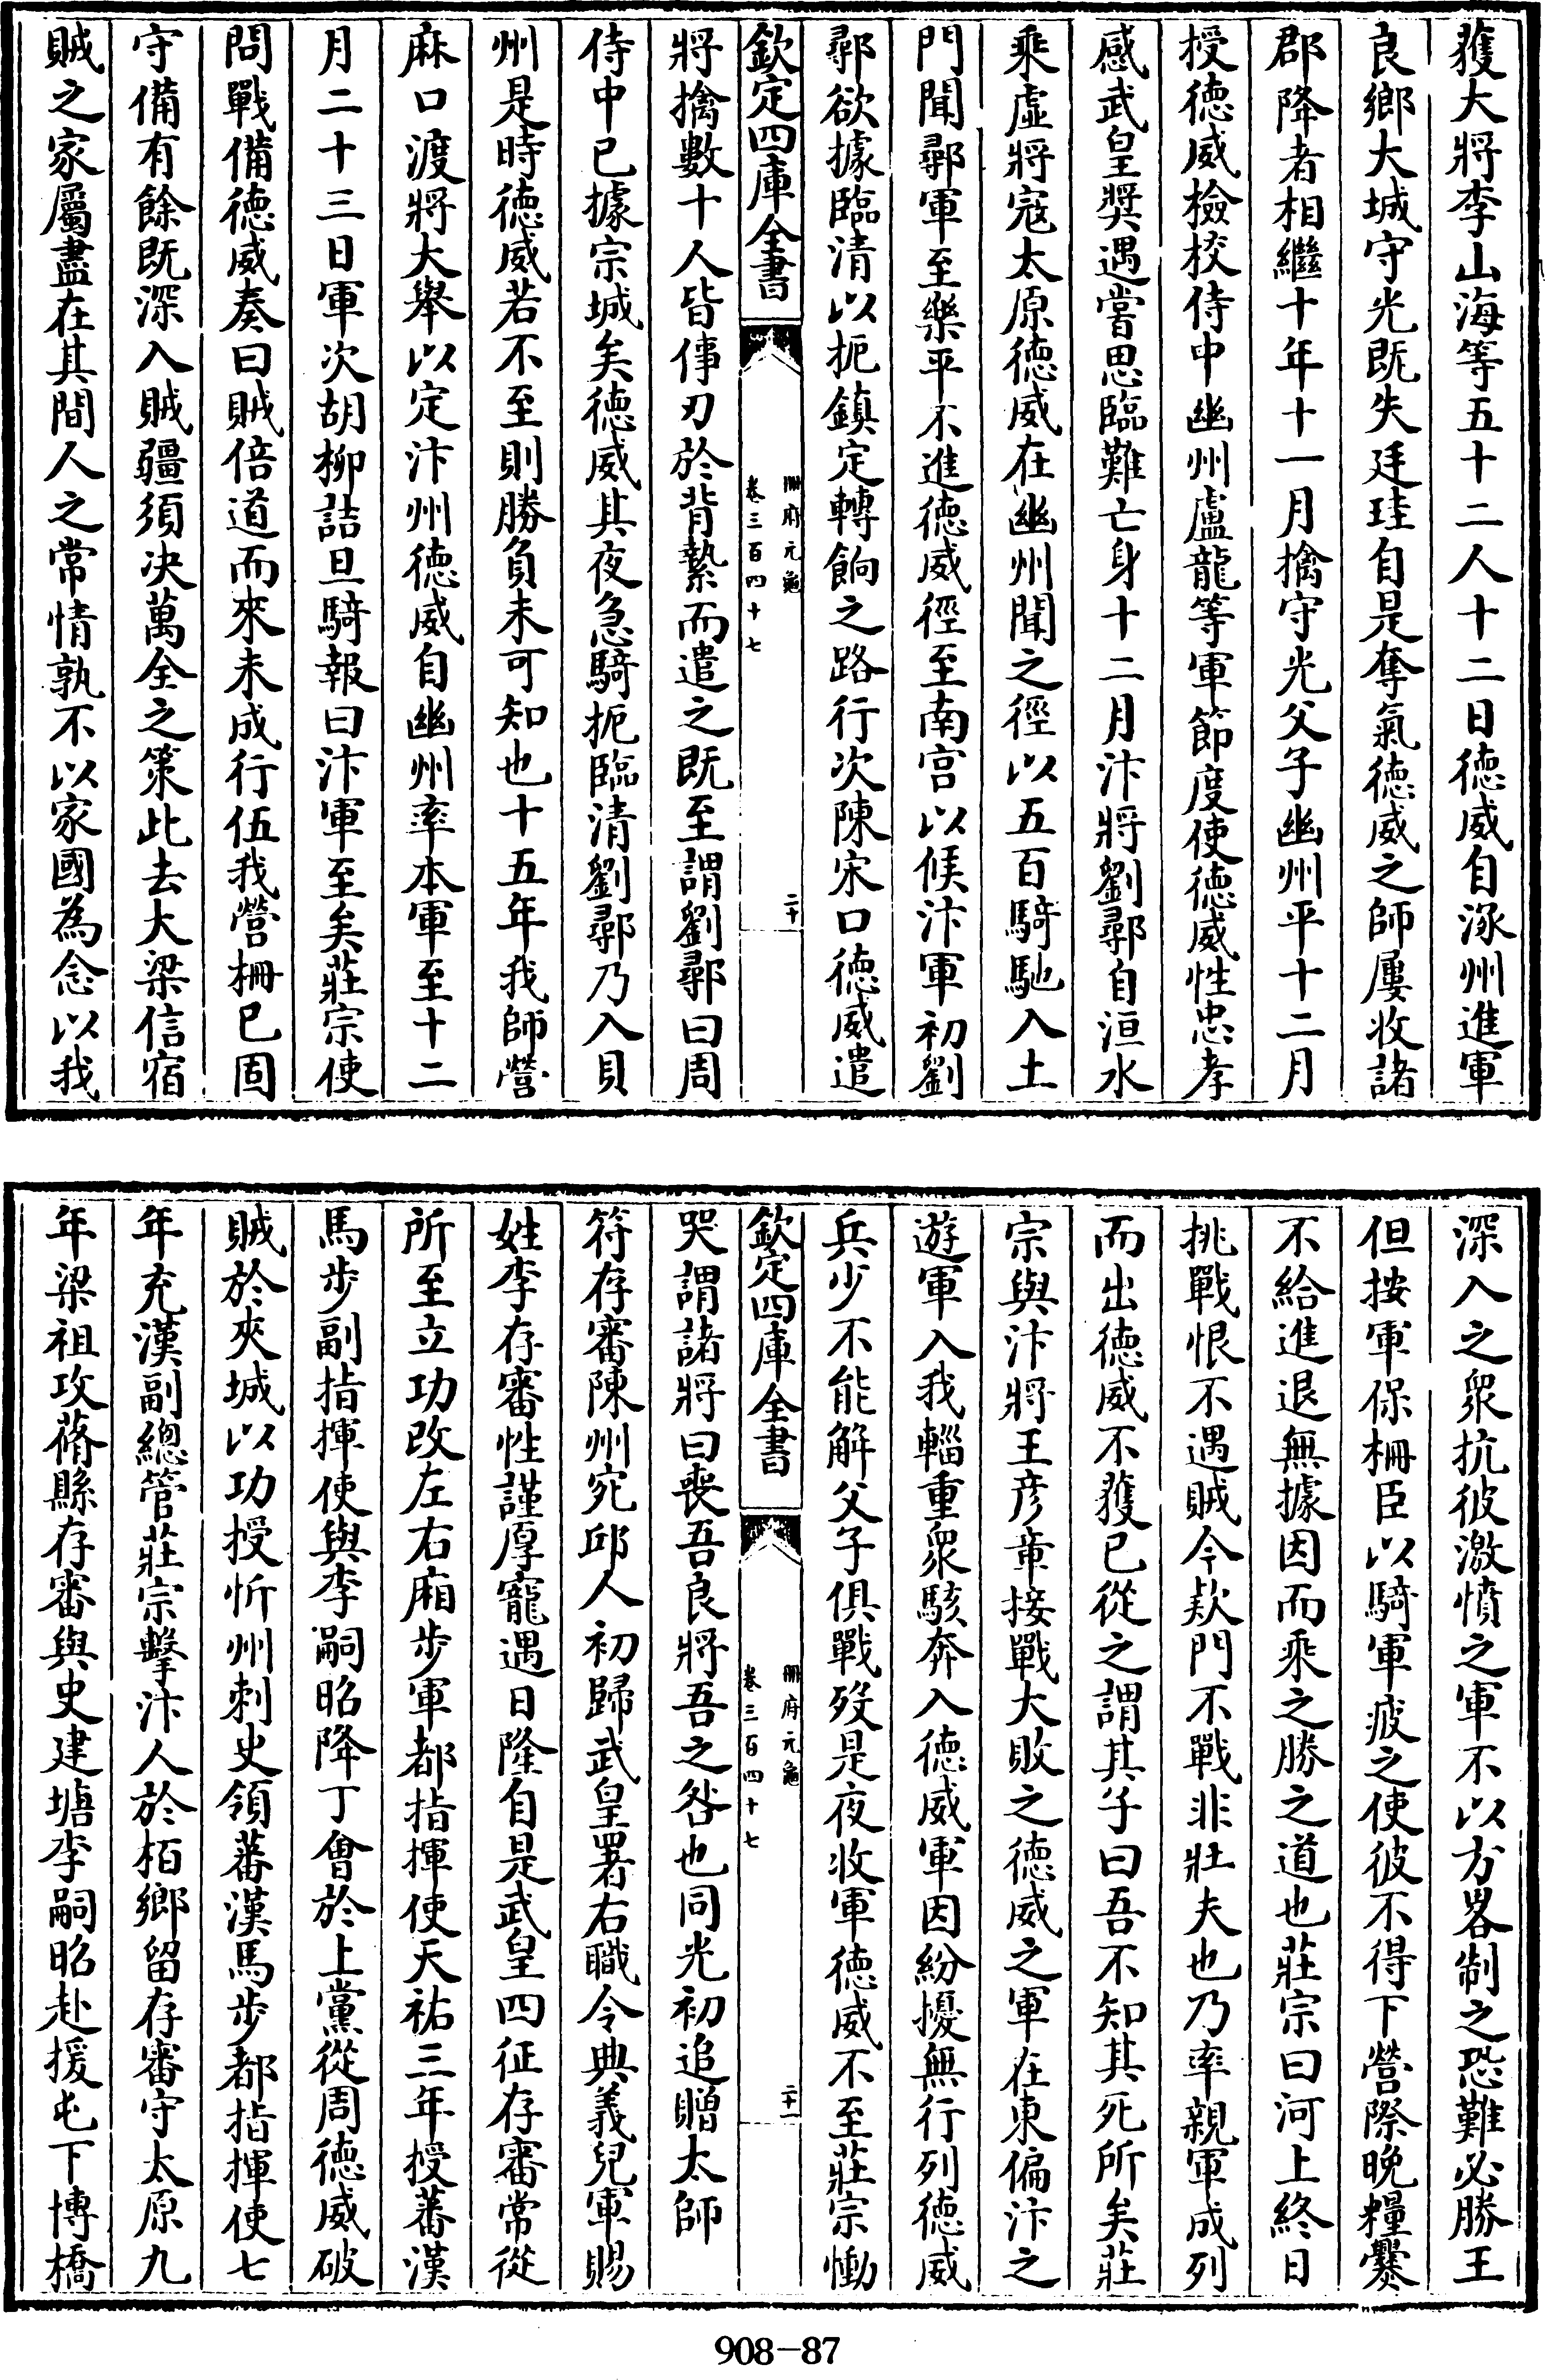 獲大將李山海等五十二人十二日德威自涿州進軍
良鄉大城守光既失廷珪自是奪氣德威之師屢收諸
郡降者相繼十年十一月擒守光父子幽州平十二月
授德威檢校侍中幽州盧龍等軍節度使德威性忠孝
感武皇獎遇嘗思臨難亡身十二月汴將劉鄩自洹水
乘虛將寇太原德威在幽州聞之徑以五百騎馳入土
門聞鄩軍至樂平不進德威徑至南宫以候汴軍初劉
鄩欲據臨清以扼鎮定轉餉之路行次陳宋口德威遣
欽定四庫全書
冊府元龜
卷三百四十七
二十
將擒數十人皆倳刃於背縶而遣之既至謂劉鄩曰周
侍中已據宗城矣德威其夜急騎扼臨清劉鄩乃入貝
州是時德威若不至則勝負未可知也十五年我師營
麻口渡將大舉以定汴州德威自幽州率本軍至十二
月二十三日軍次胡柳詰旦騎報曰汴軍至矣莊宗使
問戰備德威奏曰賊倍道而來未成行伍我營柵已固
守備有餘既深入賊疆須決萬全之策此去大梁信宿
賊之家屬盡在其間人之常情孰不以家國為念以我
深入之衆抗彼激憤之軍不以方畧制之恐難必勝王
但按軍保柵臣以騎軍疲之使彼不得下營際晚糧爨
不給進退無據因而乘之勝之道也莊宗曰河上終日
挑戰恨不遇賊今欵門不戰非壯夫也乃率親軍成列
而出德威不獲已從之謂其子曰吾不知其死所矣莊
宗與汴將王彦章接戰大敗之德威之軍在東偏汴之
遊軍入我輜重衆駭奔入德威軍因紛擾無行列德威
兵少不能解父子俱戰歿是夜收軍德威不至莊宗慟
欽定四庫全書
冊府元龜
卷三百四十七
二十一
哭謂諸將曰喪吾良將吾之咎也同光初追贈太師
符存審陳州宛邱人初歸武皇署右職令典義兒軍賜
姓李存審性謹厚寵遇日隆自是武皇四征存審常從
所至立功改左右廂步軍都指揮使天祐三年授蕃漢
馬步副指揮使與李嗣昭降丁會於上黨從周德威破
賊於夾城以功授忻州刺史領蕃漢馬步都指揮使七
年充漢副總管莊宗擊汴人於栢鄉留存審守太原九
年梁祖攻蓨縣存審與史建塘李嗣昭赴援屯下博橋
908-87